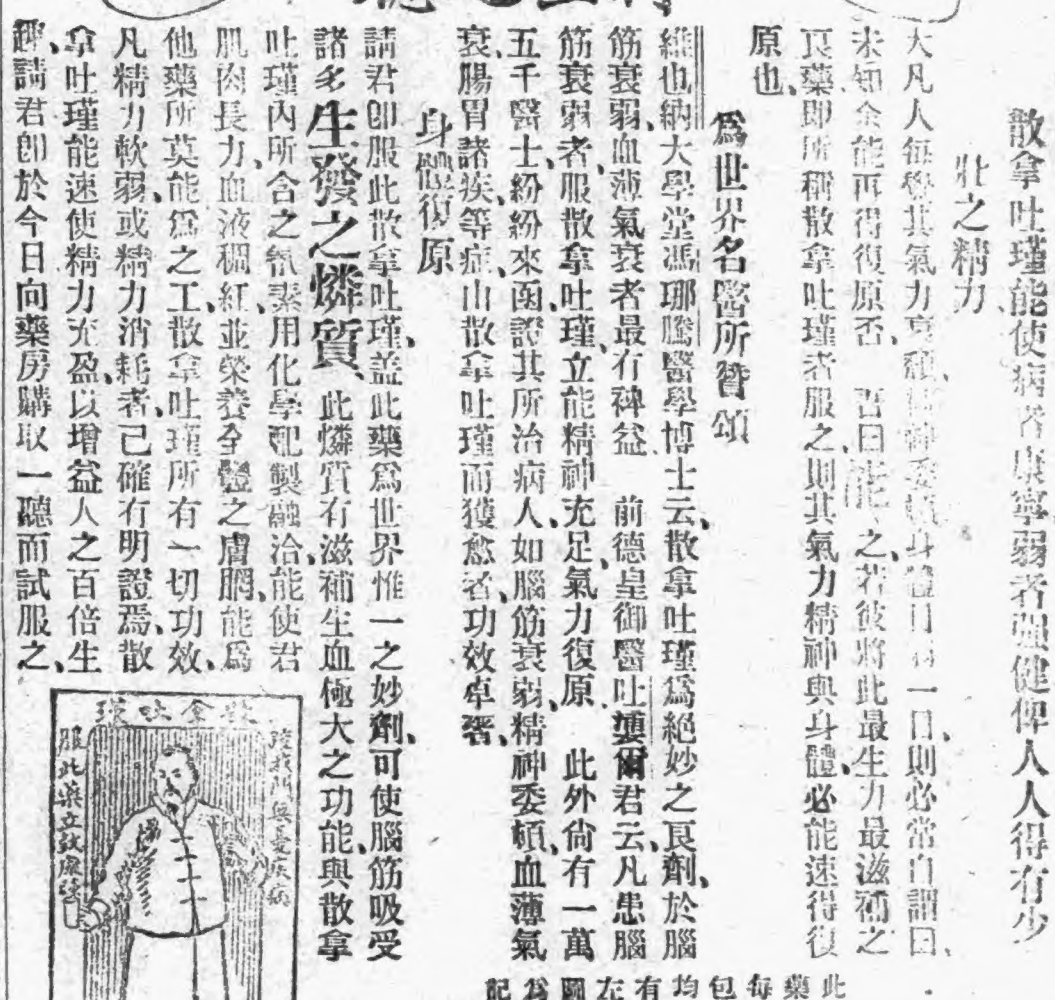 散拿吐瑾能使病者康寧弱者强健俾人人得有少
壯之精力
大凡人每覺其氣力衰頹、精神委頓、身體日弱一日、則必常自謂曰、
未知余能再得復原否 吾曰能、之、若彼將此最生力最滋補之
良藥、即所稱散拿吐瑾者服之、則其氣力精神與身體、必能速得復
原也、
爲世界名醫所贊頌
維也納大學堂馮瑯騰醫學博士云、散拿吐瑾爲絕妙之良劑、於腦
筋衰弱、血薄氣衰者最有裨益 前德皇御醫吐嬷爾君云、凡患腦
筋衰弱者、服散拿吐瑾、立能精神充足、氣力復原 此外尙有一萬
五千醫士、紛紛來函、證其所治病人、如腦筋衰弱、精神委頓、血薄氣
衰、腸胃諸疾等症、由散拿吐瑾而獲愈者、功效卓著、
身體復原
請君卽服此散拿吐瑾、盖此藥爲世界惟一之妙劑、可使腦筋吸受
諸多生發之燐質、此燐質有滋補生血極大之功能、與散拿
吐瑾內所含之氮素、用化學配製融洽、能使君
肌肉長力、血液稠紅、並榮養全體之膚膶、能爲
他藥所莫能爲之工、散拿吐瑾所有一切功效、
凡精力軟弱、或精力消耗者、已確有明證焉、散
拿吐瑾能速使精力充盈、以增益人之百倍生
趣、請君卽於今日向藥房購取一聽而試服之、
散拿吐瑾
服此藥立致康强
此藥每包均有左圖爲記